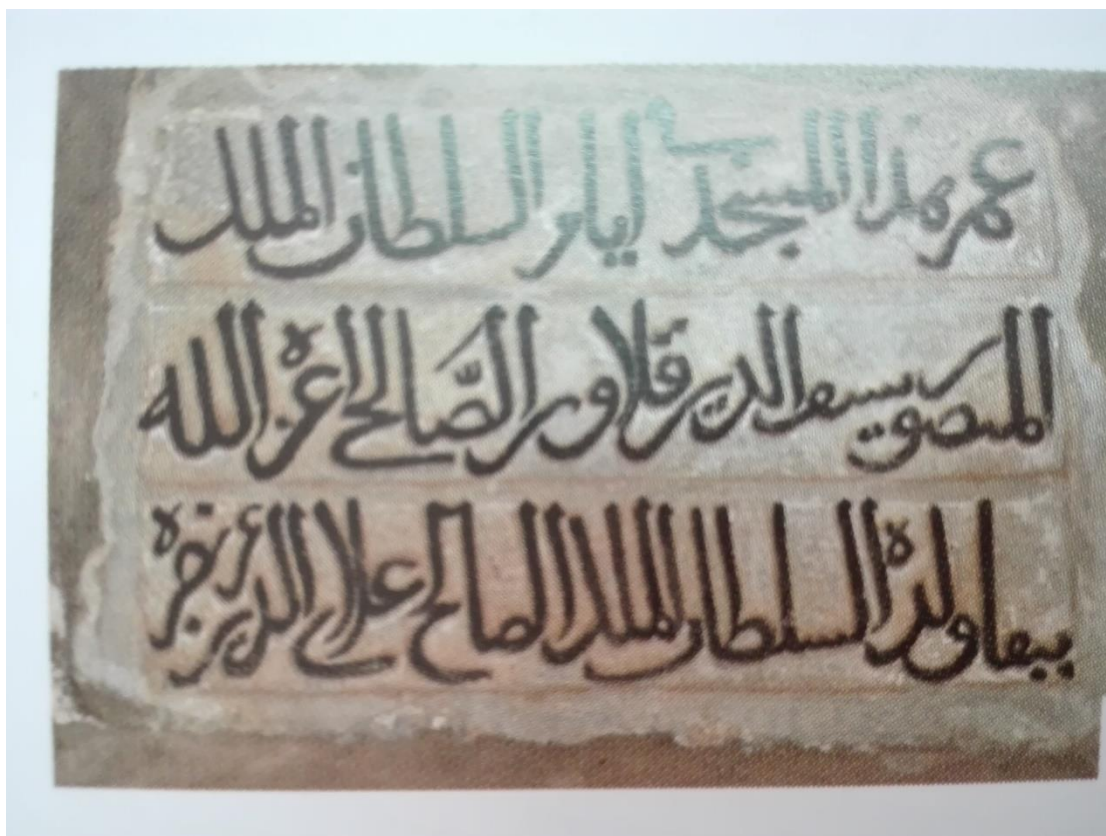 عمر هذا المسجد في ايام السلطان الملك
المنصور سيف الدين قلاون الصالحي اعز الله
ببقا ولده السلطان الملك الصالح علاء الدين